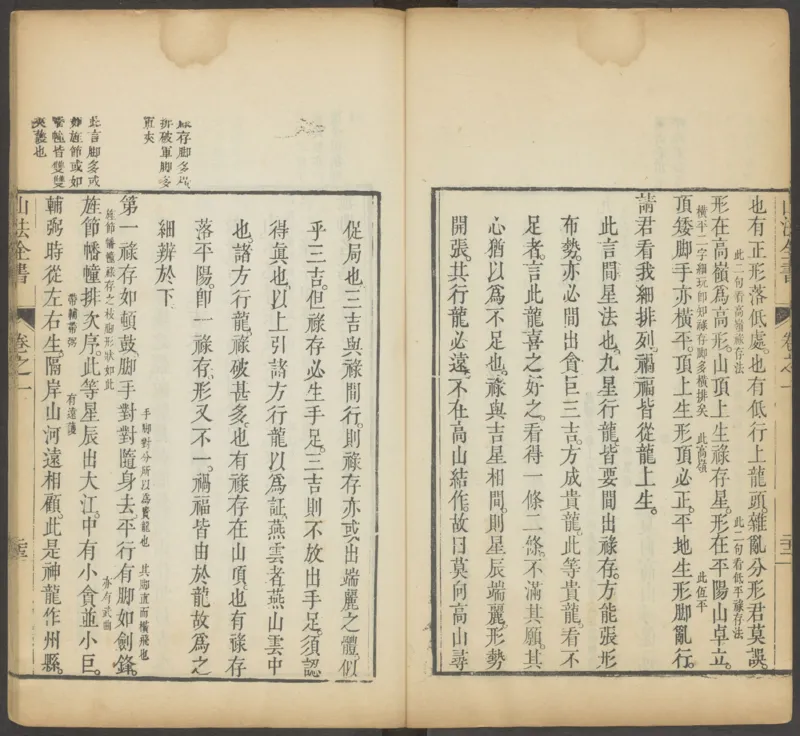 也有正形落低處。也有低行上龍頭。雜亂分形君莫誤。
此二句看高嶺祿存法
此二句看低平祿存法
形在高嶺為高形。山頂上生祿存星。形在平陽山卓立。
橫平二字細玩即知祿存脚多橫排矣
此高嶺
此低平
頂矮脚手亦橫平。頂上生形頂必正。平地生形脚亂行。
請君看我細排列。禍福皆從龍上生。
此言間星法也。九星行龍皆要間出祿存。方能張形
布勢。亦必間出貪巨三吉。方成貴龍。此等貴龍。看不
足者。言此龍喜之好之。看得一條二條。不滿其願。其
心猶以為不足也。祿與吉星相間。則星辰端麗。形勢
開張。其行龍必遠。不在高山結作。故曰莫向高山尋
山法全書
卷之一
促局也。三吉與祿間行。則祿存亦或出端麗之體。似
乎三吉。但祿存必生手足。三吉則不放出手足。須認
得真也。以上引諸方行龍以為証。燕雲者。燕山雲中
也。諸方行龍。祿破甚多。也有祿存在山頂。也有祿存
落平陽。即一祿存。形又不一。禍福皆由於龍。故為之
細辨於下
祿存脚多
破軍脚多
軍夾
手脚對分所以為貴龍也
其脚直而橫飛也
第一祿存如頓鼓。脚手對對隨身去。平行有脚如劍鋒。
旌節幡幢祿存之枝脚形狀如此
亦有武曲
旌節幡幢排次序。此等星辰出大江。中有小貪並小巨。
帶輔帶弼
有遠護
輔弼時從左右生。隔岸山河遠相顧。此是神龍作州縣。
此言脚多或
如旌節或如
幡幢皆雙雙
夾護也
山法全書
卷之一